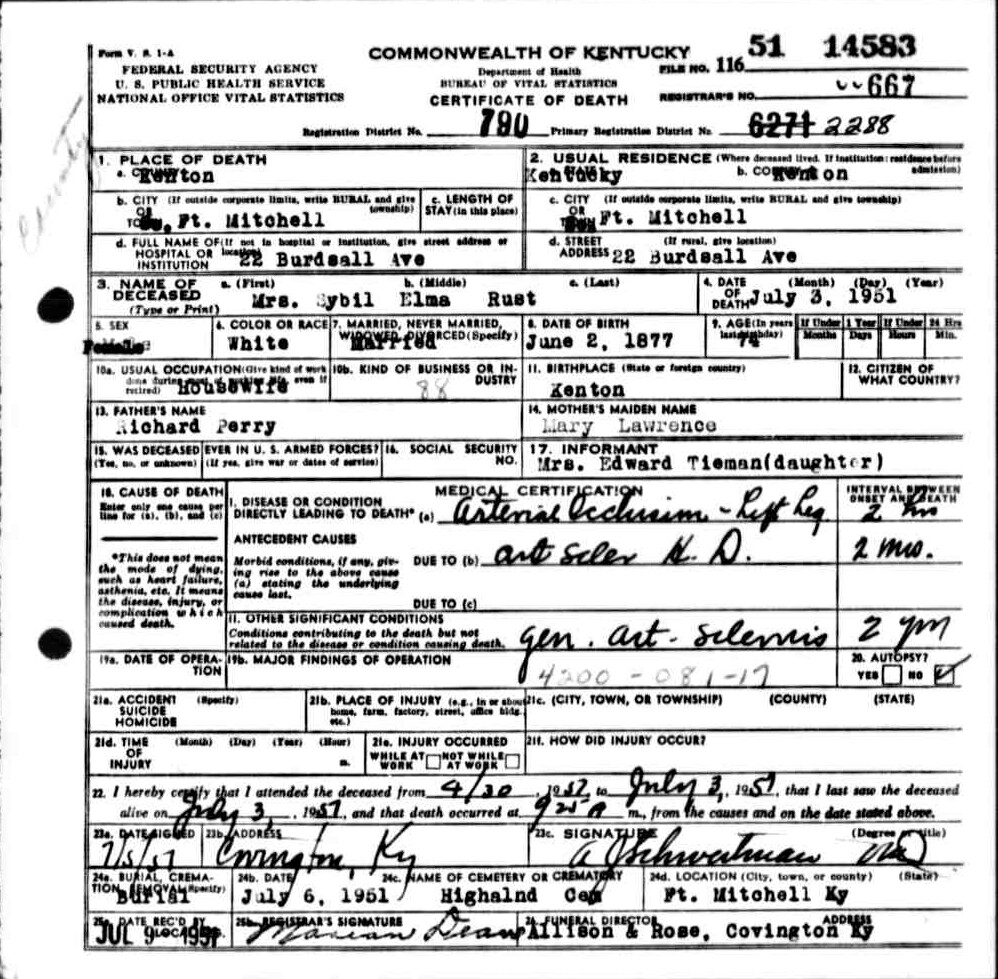 Form V. S. 1-A
COMMONWEALTH OF KENTUCKY
FILE NO. 116 51 14583
FEDERAL SECURITY AGENCY
U. S. PUBLIC HEALTH SERVICE
NATIONAL OFFICE VITAL STATISTICS
Department of Health
BUREAU OF VITAL STATISTICS
CERTIFICATE OF DEATH
REGISTRAR'S NO. 667
Registration District No. 790 Primary Registration District No. 6271 2288
1. PLACE OF DEATH
a. COUNTY Kenton
2. USUAL RESIDENCE (Where deceased lived. If institution: residence before admission)
a. STATE Kentucky b. COUNTY Kenton
b. CITY (If outside corporate limits, write RURAL and give township)
OR TOWN Ft. Mitchell
c. LENGTH OF STAY (in this place)
c. CITY (If outside corporate limits, write RURAL and give township)
OR TOWN Ft. Mitchell
d. FULL NAME OF (If not in hospital or institution, give street address or location)
HOSPITAL OR INSTITUTION 22 Burdsall Ave
d. STREET ADDRESS (If rural, give location)
22 Burdsall Ave
3. NAME OF DECEASED (Type or Print)
a. (First) b. (Middle) c. (Last)
Mrs. Sybil Elma Rust
4. DATE OF DEATH (Month) (Day) (Year)
July 3, 1951
5. SEX
Female
6. COLOR OR RACE
White
7. MARRIED, NEVER MARRIED, WIDOWED, DIVORCED (Specify)
Married
8. DATE OF BIRTH
June 2, 1877
9. AGE (In years last birthday)
74
If Under 1 Year Months Days
If Under 24 Hrs Hours Min.
10a. USUAL OCCUPATION (Give kind of work done during most of working life, even if retired)
Housewife
10b. KIND OF BUSINESS OR INDUSTRY
88
11. BIRTHPLACE (State or foreign country)
Kenton
12. CITIZEN OF WHAT COUNTRY?
13. FATHER'S NAME
Richard Perry
14. MOTHER'S MAIDEN NAME
Mary Lawrence
15. WAS DECEASED EVER IN U. S. ARMED FORCES?
(Yes, no, or unknown) (If yes, give war or dates of service)
16. SOCIAL SECURITY NO.
17. INFORMANT
Mrs. Edward Tieman(daughter)
18. CAUSE OF DEATH
Enter only one cause per line for (a), (b), and (c)
MEDICAL CERTIFICATION
INTERVAL BETWEEN ONSET AND DEATH
I. DISEASE OR CONDITION
DIRECTLY LEADING TO DEATH* (a) Arterial Occlusion - Left Leg 2 hrs
ANTECEDENT CAUSES
Morbid conditions, if any, giving rise to the above cause (a) stating the underlying cause last.
DUE TO (b) art Scler H. D. 2 mos.
DUE TO (c)
*This does not mean the mode of dying, such as heart failure, asthenia, etc. It means the disease, injury, or complication which caused death.
II. OTHER SIGNIFICANT CONDITIONS
Conditions contributing to the death but not related to the disease or condition causing death.
gen. art-
2 yrs
19a. DATE OF OPERATION
19b. MAJOR FINDINGS OF OPERATION
4200 - 081-17
20. AUTOPSY?
YES NO ✓
21a. ACCIDENT SUICIDE HOMICIDE (Specify)
21b. PLACE OF INJURY (e.g., in or about home, farm, factory, street, office bldg. etc.)
21c. (CITY, TOWN, OR TOWNSHIP) (COUNTY) (STATE)
21d. TIME OF INJURY (Month) (Day) (Year) (Hour) m.
21e. INJURY OCCURRED
WHILE AT WORK NOT WHILE AT WORK
21f. HOW DID INJURY OCCUR?
22. I hereby certify that I attended the deceased from 4/30, 1951, to July 3, 1951, that I last saw the deceased
alive on July 3, 1951, and that death occurred at 925 A m., from the causes and on the date stated above.
23a. DATE SIGNED
7/5/51
23b. ADDRESS
Covington, Ky
23c. SIGNATURE (Degree or title)
A J Schwertman MD
24a. BURIAL, CREMATION, REMOVAL (Specify)
Burial
24b. DATE
July 6, 1951
24c. NAME OF CEMETERY OR CREMATORY
Highalnd Cem
24d. LOCATION (City, town, or county) (State)
Ft. Mitchell Ky
25a. DATE REC'D BY LOCAL
JUL 9 1951
25b. REGISTRAR'S SIGNATURE
Marian Deans
26. FUNERAL DIRECTOR ADDRESS
Allison & Rose, Covington Ky